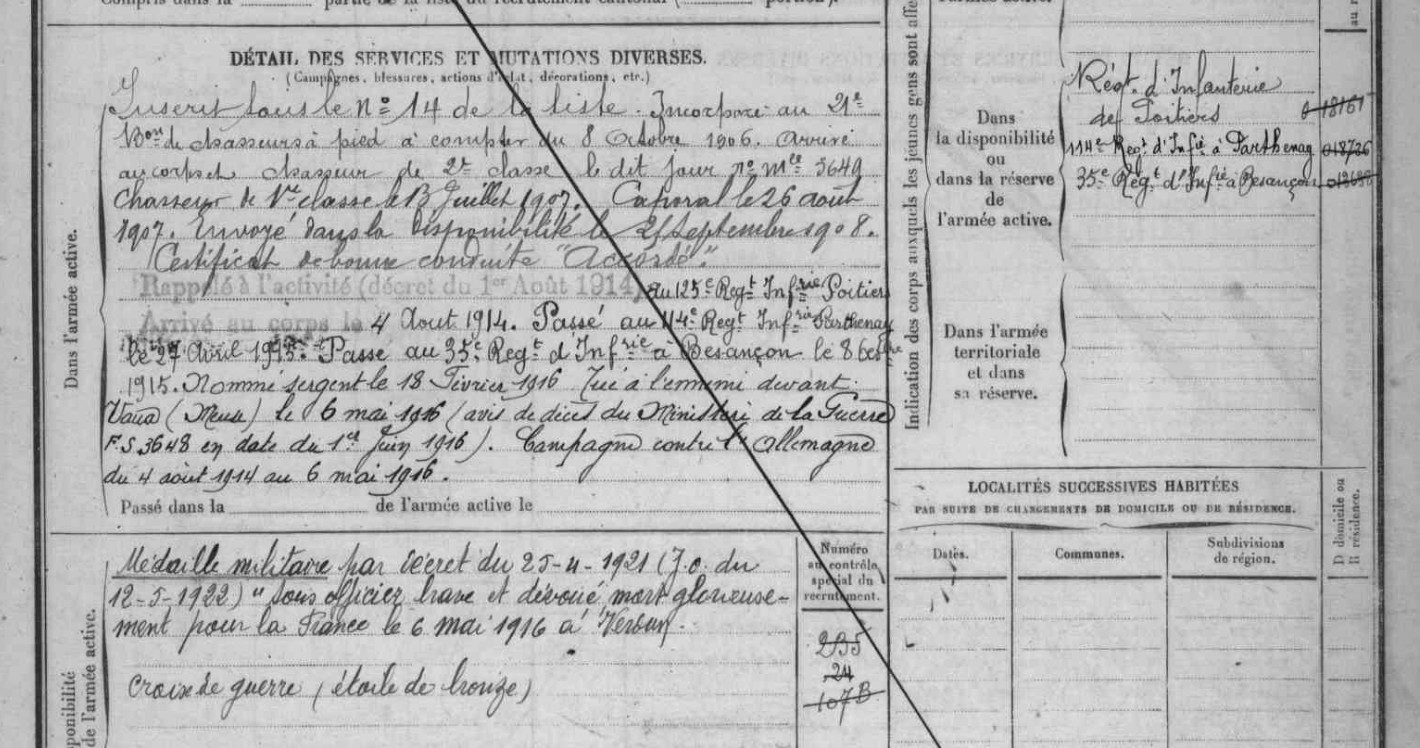 Compris dans la partie de la liste du recrutement cantonal ( portion).
DÉTAIL DES SERVICES ET MUTATIONS DIVERSES.
(Campagnes, blessures, actions d'éclat, décorations, etc.)
Inscrit sous le n° 14 de la liste. Incorporé au 21e
Bon de chasseurs à pied à compter du 8 Octobre 1906. Arrivé
au corps et chasseur de 2e classe le dit jour no mle 5649
Chasseur de 1re classe le 13 Juillet 1907. Caporal le 26 août
1907. Envoyé dans la disponibilité le Septembre 1908.
Certificat de bonne conduite "Accordé".
Rappelé à l'activité (décret du 1er Août 1914) au 125e Regt Infrie Poitiers
Arrivé au corps le 4 Aout 1914. Passé au 114e Regt Infrie Parthenay
le 27 Avril 1915. Passé au 35e Regt d'Infrie à Besançon le 8 Octbre
1915. Nommé sergent le 18 Février 1916 Tué à l'ennemi devant
Vaux (Meuse) le 6 mai 1916 (avis de décès du Ministère de la Guerre
F.S 3648 en date du 1er Juin 1916). Campagne contre l'Allemagne
du 4 août 1914 au 6 mai 1916.
Passé dans la de l'armée active le
Dans l'armée active.
Médaille militaire par décret du 1921 (J.O. du
12-5-1922) "sous officier brave et dévoué, mort glorieuse-
ment pour la France le 6 mai 1916 à Verdun.
Croix de guerre (étoile de bronze)
ponibilité
de l'armée active.
Numéro
au contrôle
spécial du
recrutement.
24
107 B
Indication des corps auxquels les jeunes gens sont affe
l'armée active.
Dans
la disponibilité
ou
dans la réserve
de
l'armée active.
Régt. d'Infanterie
de Poitiers
114e Regt d'Infie à Parthenay
35e Regt d'Infie à Besançon
Dans l'armée
territoriale
et dans
sa réserve.
au r
LOCALITÉS SUCCESSIVES HABITÉES
PAR SUITE DE CHANGEMENTS DE DOMICILE OU DE RÉSIDENCE.
Dates.
Communes.
Subdivisions
de région.
D domicile ou
R résidence.